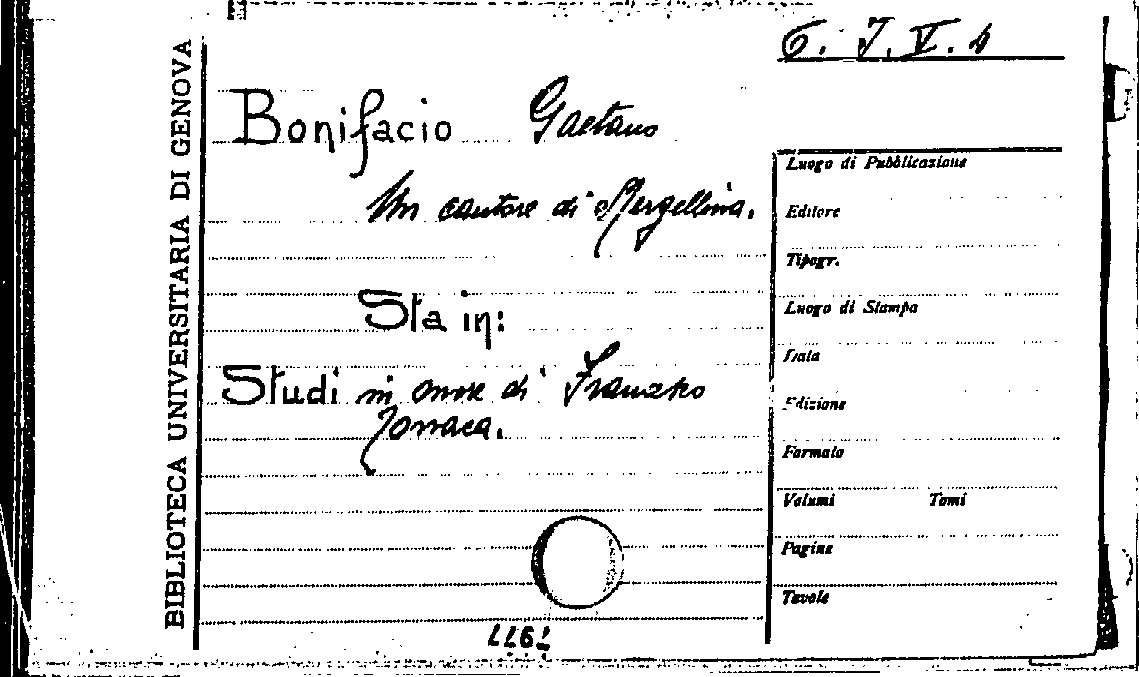 6. J. V. 4
BIBLIOTECA UNIVERSITARIA DI GENOVA
Bonifacio Gaetano
Un cantore di Mergellina.
Sta in:
Studi in onore di Francesco
Torraca.
Luogo di Pubblicazione
Editore
Tipogr.
Luogo di Stampa
Data
Edizione
Formato
Volumi Tomi
Pagine
Tavole